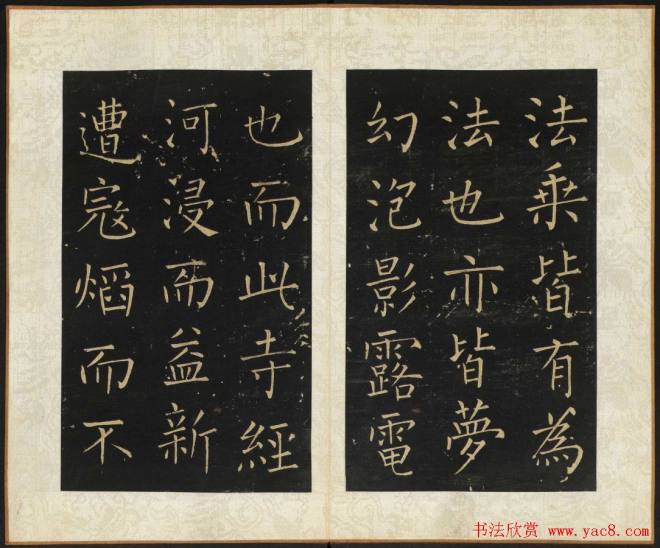 法乗皆有為
法也亦皆夢
幻泡影露電
也而此寺經
河浸而益新
遭寇熖而不
书法欣赏 www.yac8.com